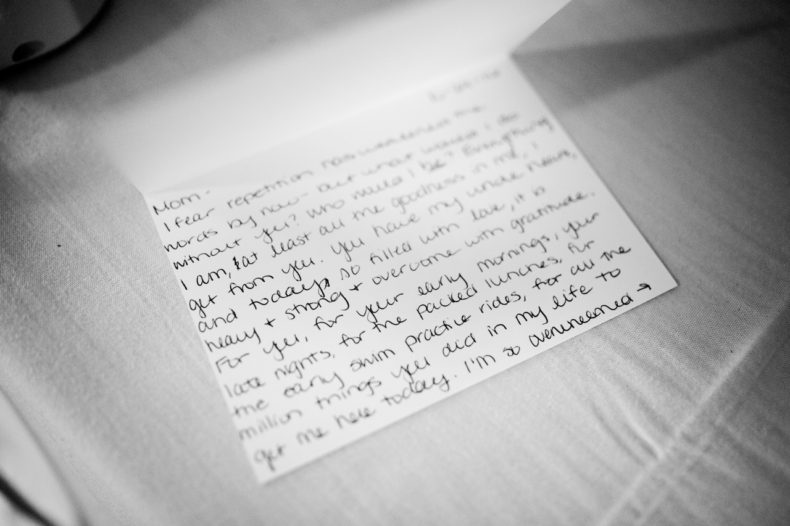 Mom -
I fear repetition has weakened the
words by now - but what would I do
without you? Who would I be? Everything
I am, at least all the goodness in me, I
get from you. You have my whole heart,
and today, so filled with love, it is
heavy + strong + overcome with gratitude.
For you, for your early mornings, your
late nights, for the packed lunches, for
the early swim practice rides, for all the
million things you did in my life to
get me here today. I'm so overwhelmed →